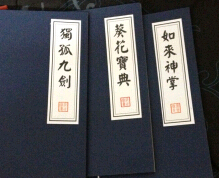 獨孤九劍
葵花寶典
如來神掌